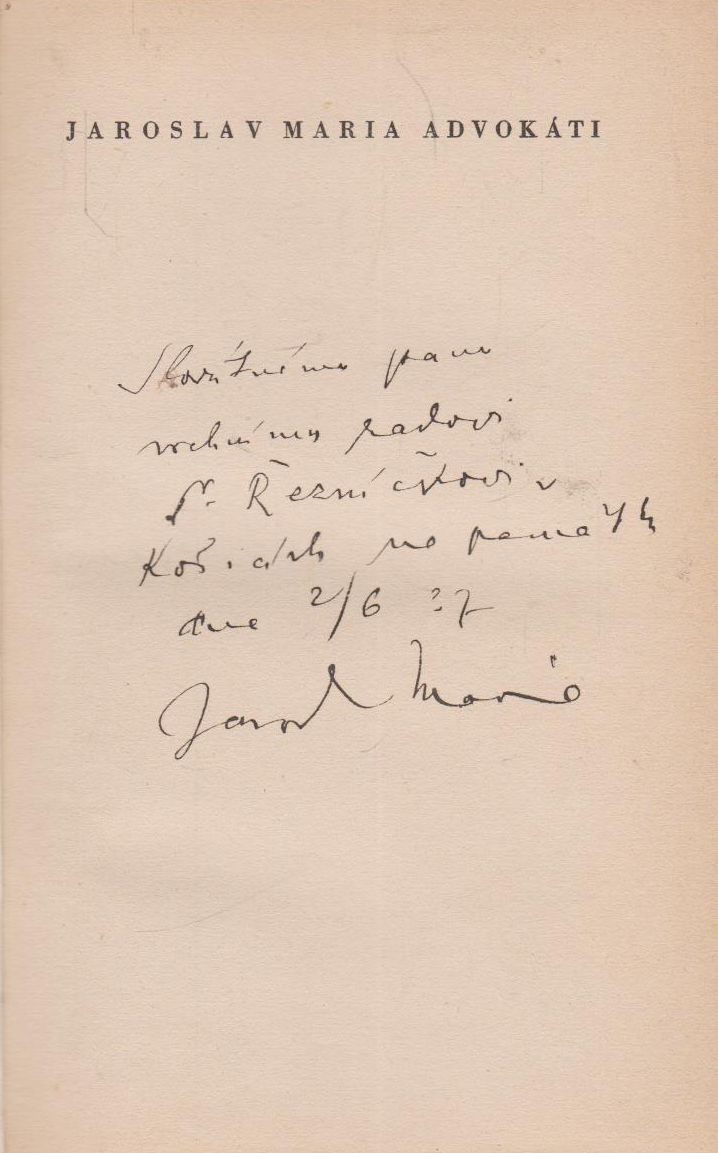 JAROSLAV MARIA ADVOKÁTI
Slovutnému panu
vrchnímu radovi
Dr. Řezníčkovi v
Košicích na památk
dne 2/6 37
Jarosl Maria